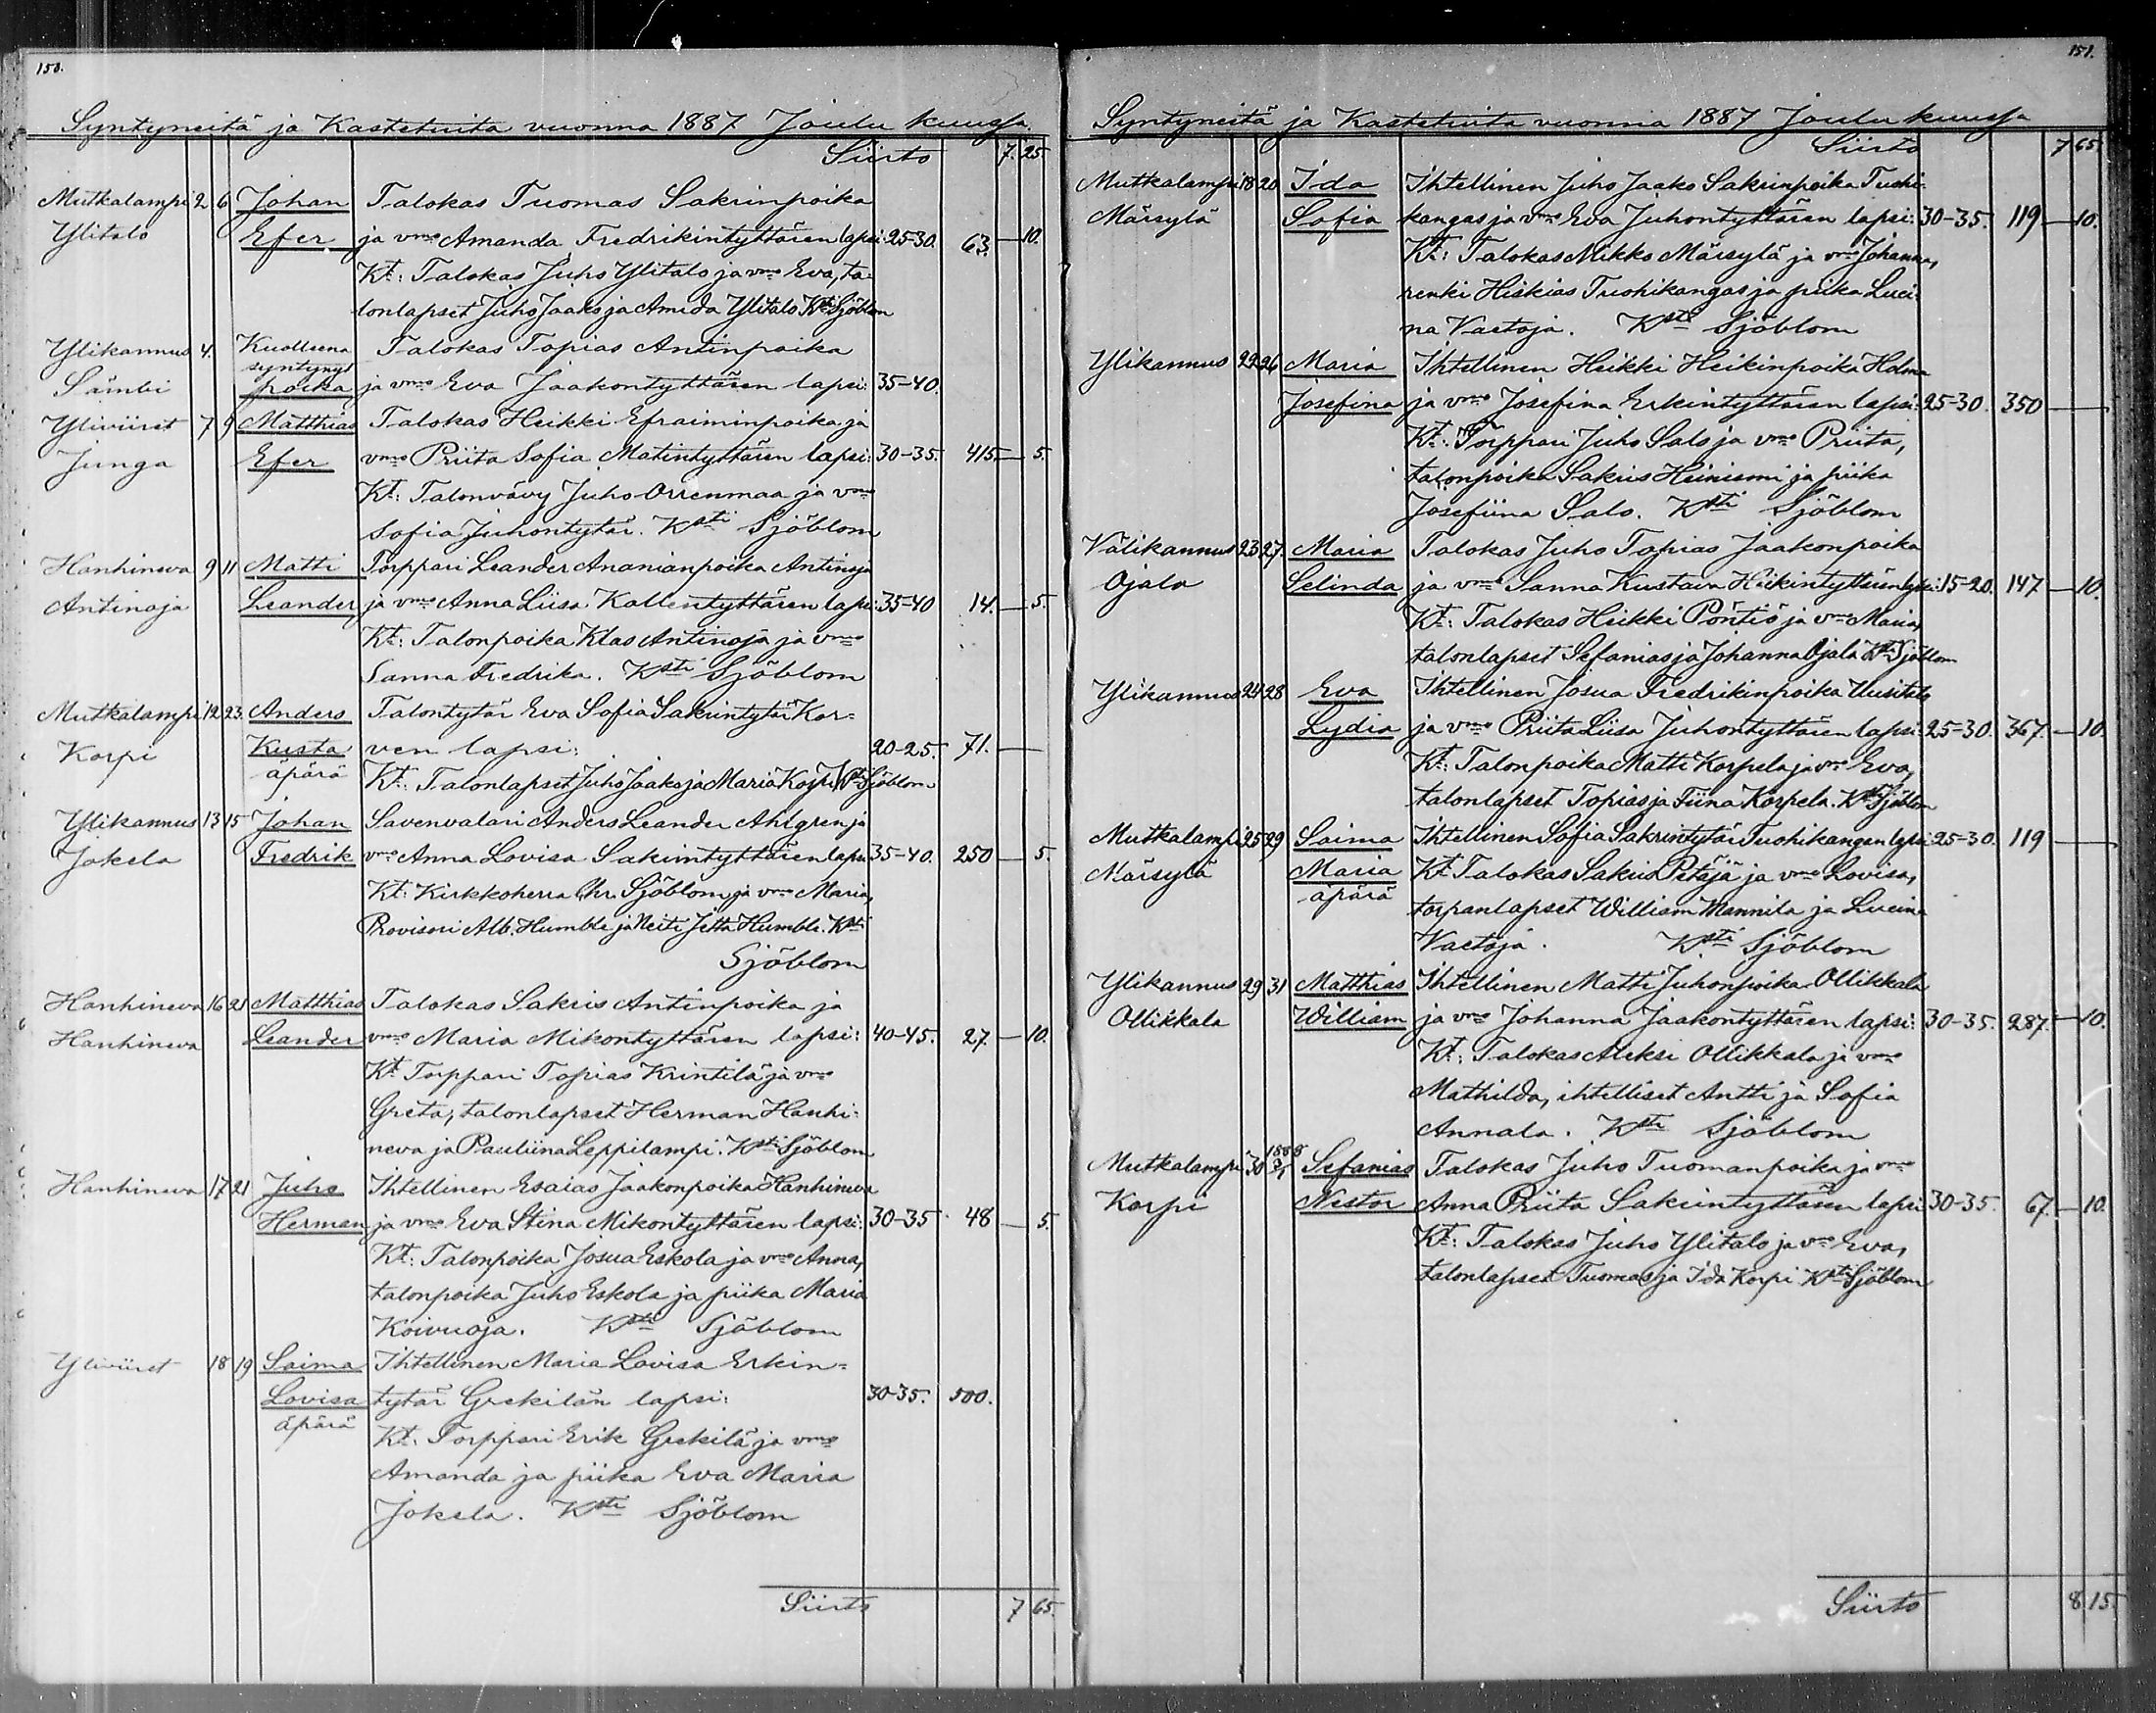 150.
Syntyneitä ja Kastetuita vuonna 1887 Joulu kuussa.
Siirto 7. 25
Mutkalampi 2 6 Johan Talokas Tuomas Sakrinpoika
Ylitalo Efer ja vmo Amanda Fredrikintyttären lapsi: 25-30. 63. — 10.
Kt: Talokas Juho Ylitalo ja vmo Eva, ta-
lonlapset Juho Jaako ja Amida Ylitalo Ksti Sjöblom
Ylikannus 4. Kuolleena Talokas Topias Antinpoika
syntynyt
Sämbi poika ja vmo Eva Jaakontyttären lapsi: 35-40.
Yliviiret 7 9 Matthias Talokas Heikki Efraiminpoika ja
Junga Efer vmo Priita Sofia Matintyttären lapsi: 30-35. 415. — 5.
Kt: Talonvävy Juho Orrenmaa ja vmo
Sofia Juhontytär. Ksti Sjöblom
Hanhineva 9 11 Matti Torppari Leander Ananianpoika Antinoja
Antinoja Leander ja vmo Anna Liisa Kallentyttären lapsi: 35-40 14. — 5.
Kt: Talonpoika Klas Antinoja ja vmo
Sanna Fredrika. Ksti Sjöblom
Mutkalampi 12 23. Anders Talontytär Eva Sofia Sakrintytär Kor-
Korpi Kusta ven lapsi: 20-25. 71. —
äpärä Kt: Talonlapset Juho Jaako ja Maria Korpi Ksti Sjöblom
Ylikannus 13 15 Johan Savenvalari Anders Leander Ahlgren ja
Jokela Fredrik vmo Anna Lovisa Sakrintyttären lapsi 35-40. 250 — 5.
Kt: Kirkkoherra Chr. Sjöblom ja vmo Maria,
Provisori Alb. Humble ja Neiti Jetta Humble. Ksti
Sjöblom
Hanhineva 16 21 Matthias Talokas Sakris Antinpoika ja
Hanhineva Leander vmo Maria Mikontyttären lapsi: 40-45. 27. — 10.
Kt Torppari Topias Krintilä ja vmo
Greta, talonlapset Herman Hanhi-
neva ja Pauliina Leppilampi. Ksti Sjöblom
Hanhineva 17 21 Juho Ihtellinen Esaias Jaakonpoika Hanhineva
Herman ja vmo Eva Stina Mikontyttären lapsi: 30-35 48 — 5.
Kt: Talonpoika Josua Eskola ja vmo Anna,
talonpoika Juho Eskola ja piika Maria
Koivuoja. Ksti Sjöblom
Yliviiret 18 19 Saima Ihtellinen Maria Lovisa Erkin-
Lovisa tytär Grekilän lapsi: 30-35. 500.
äpärä Kt: Torppari Erik Grekilä ja vmo
Amanda ja piika Eva Maria
Jokela. Ksti Sjöblom
Siirto 7 65.
151.
Syntyneitä ja Kastetuita vuonna 1887 Joulu kuussa
Siirto 7 65.
Mutkalampi 18 20 Ida Ihtellinen Juho Jaako Sakrinpoika Tuohi-
Märsylä Sofia kangas ja vmo Eva Juhontyttären lapsi: 30-35. 119 — 10.
Kt: Talokas Mikko Märsylä ja vmo Johanna,
renki Hiskias Tuohikangas ja piika Luci-
na Vastoja. Ksti Sjöblom
Ylikannus 22 26 Maria Ihtellinen Heikki Heikinpoika Holma
Josefina ja vmo Josefina Erkintyttären lapsi: 25-30. 350 —
Kt: Torppari Juho Salo ja vmo Priita,
talonpoika Sakris Heiniemi ja piika
Josefiina Salo. Ksti Sjöblom
Välikannus 23 27. Maria Talokas Juho Topias Jaakonpoika
Ojala Selinda ja vmo Sanna Kustava Heikintyttären lapsi: 15-20. 147 — 10.
Kt: Talokas Heikki Pöntiö ja vmo Maria,
talonlapset Sefanias ja Johanna Ojala Ksti Sjöblom
Ylikannus 24 28 Eva Ihtellinen Josua Fredrikinpoika Uusitalo
Lydia ja vmo Priita Liisa Juhontyttären lapsi: 25-30. 367. — 10.
Kt: Talonpoika Matti Korpela ja vmo Eva,
talonlapset Topias ja Fiina Korpela. Ksti Sjöblom
Mutkalampi 25 29 Saima Ihtellinen Sofia Sakrintytär Tuohikangan lapsi 25-30. 119 —
Märsylä Maria Kt Talokas Sakris Petäjä ja vmo Lovisa,
äpärä torpanlapset William Mannila ja Lucina
Vastoja. Ksti Sjöblom
Ylikannus 29 31 Matthias Ihtellinen Matti Juhonpoika Ollikkala
Ollikkala William ja vmo Johanna Jaakontyttären lapsi: 30-35. 287. — 10.
Kt: Talokas Aleksi Ollikkala ja vmo
Mathilda, ihtelliset Antti ja Sofia
Annala. Ksti Sjöblom
1888
Mutkalampi 30 Sefanias Talokas Juho Tuomanpoika ja vmo
Korpi Nestor Anna Priita Sakrintyttären lapsi 30-35. 67. — 10.
Kt: Talokas Juho Ylitalo ja vmo Eva,
talonlapset Tuomas ja Ida Korpi Ksti Sjöblom
Siirto 8 15.